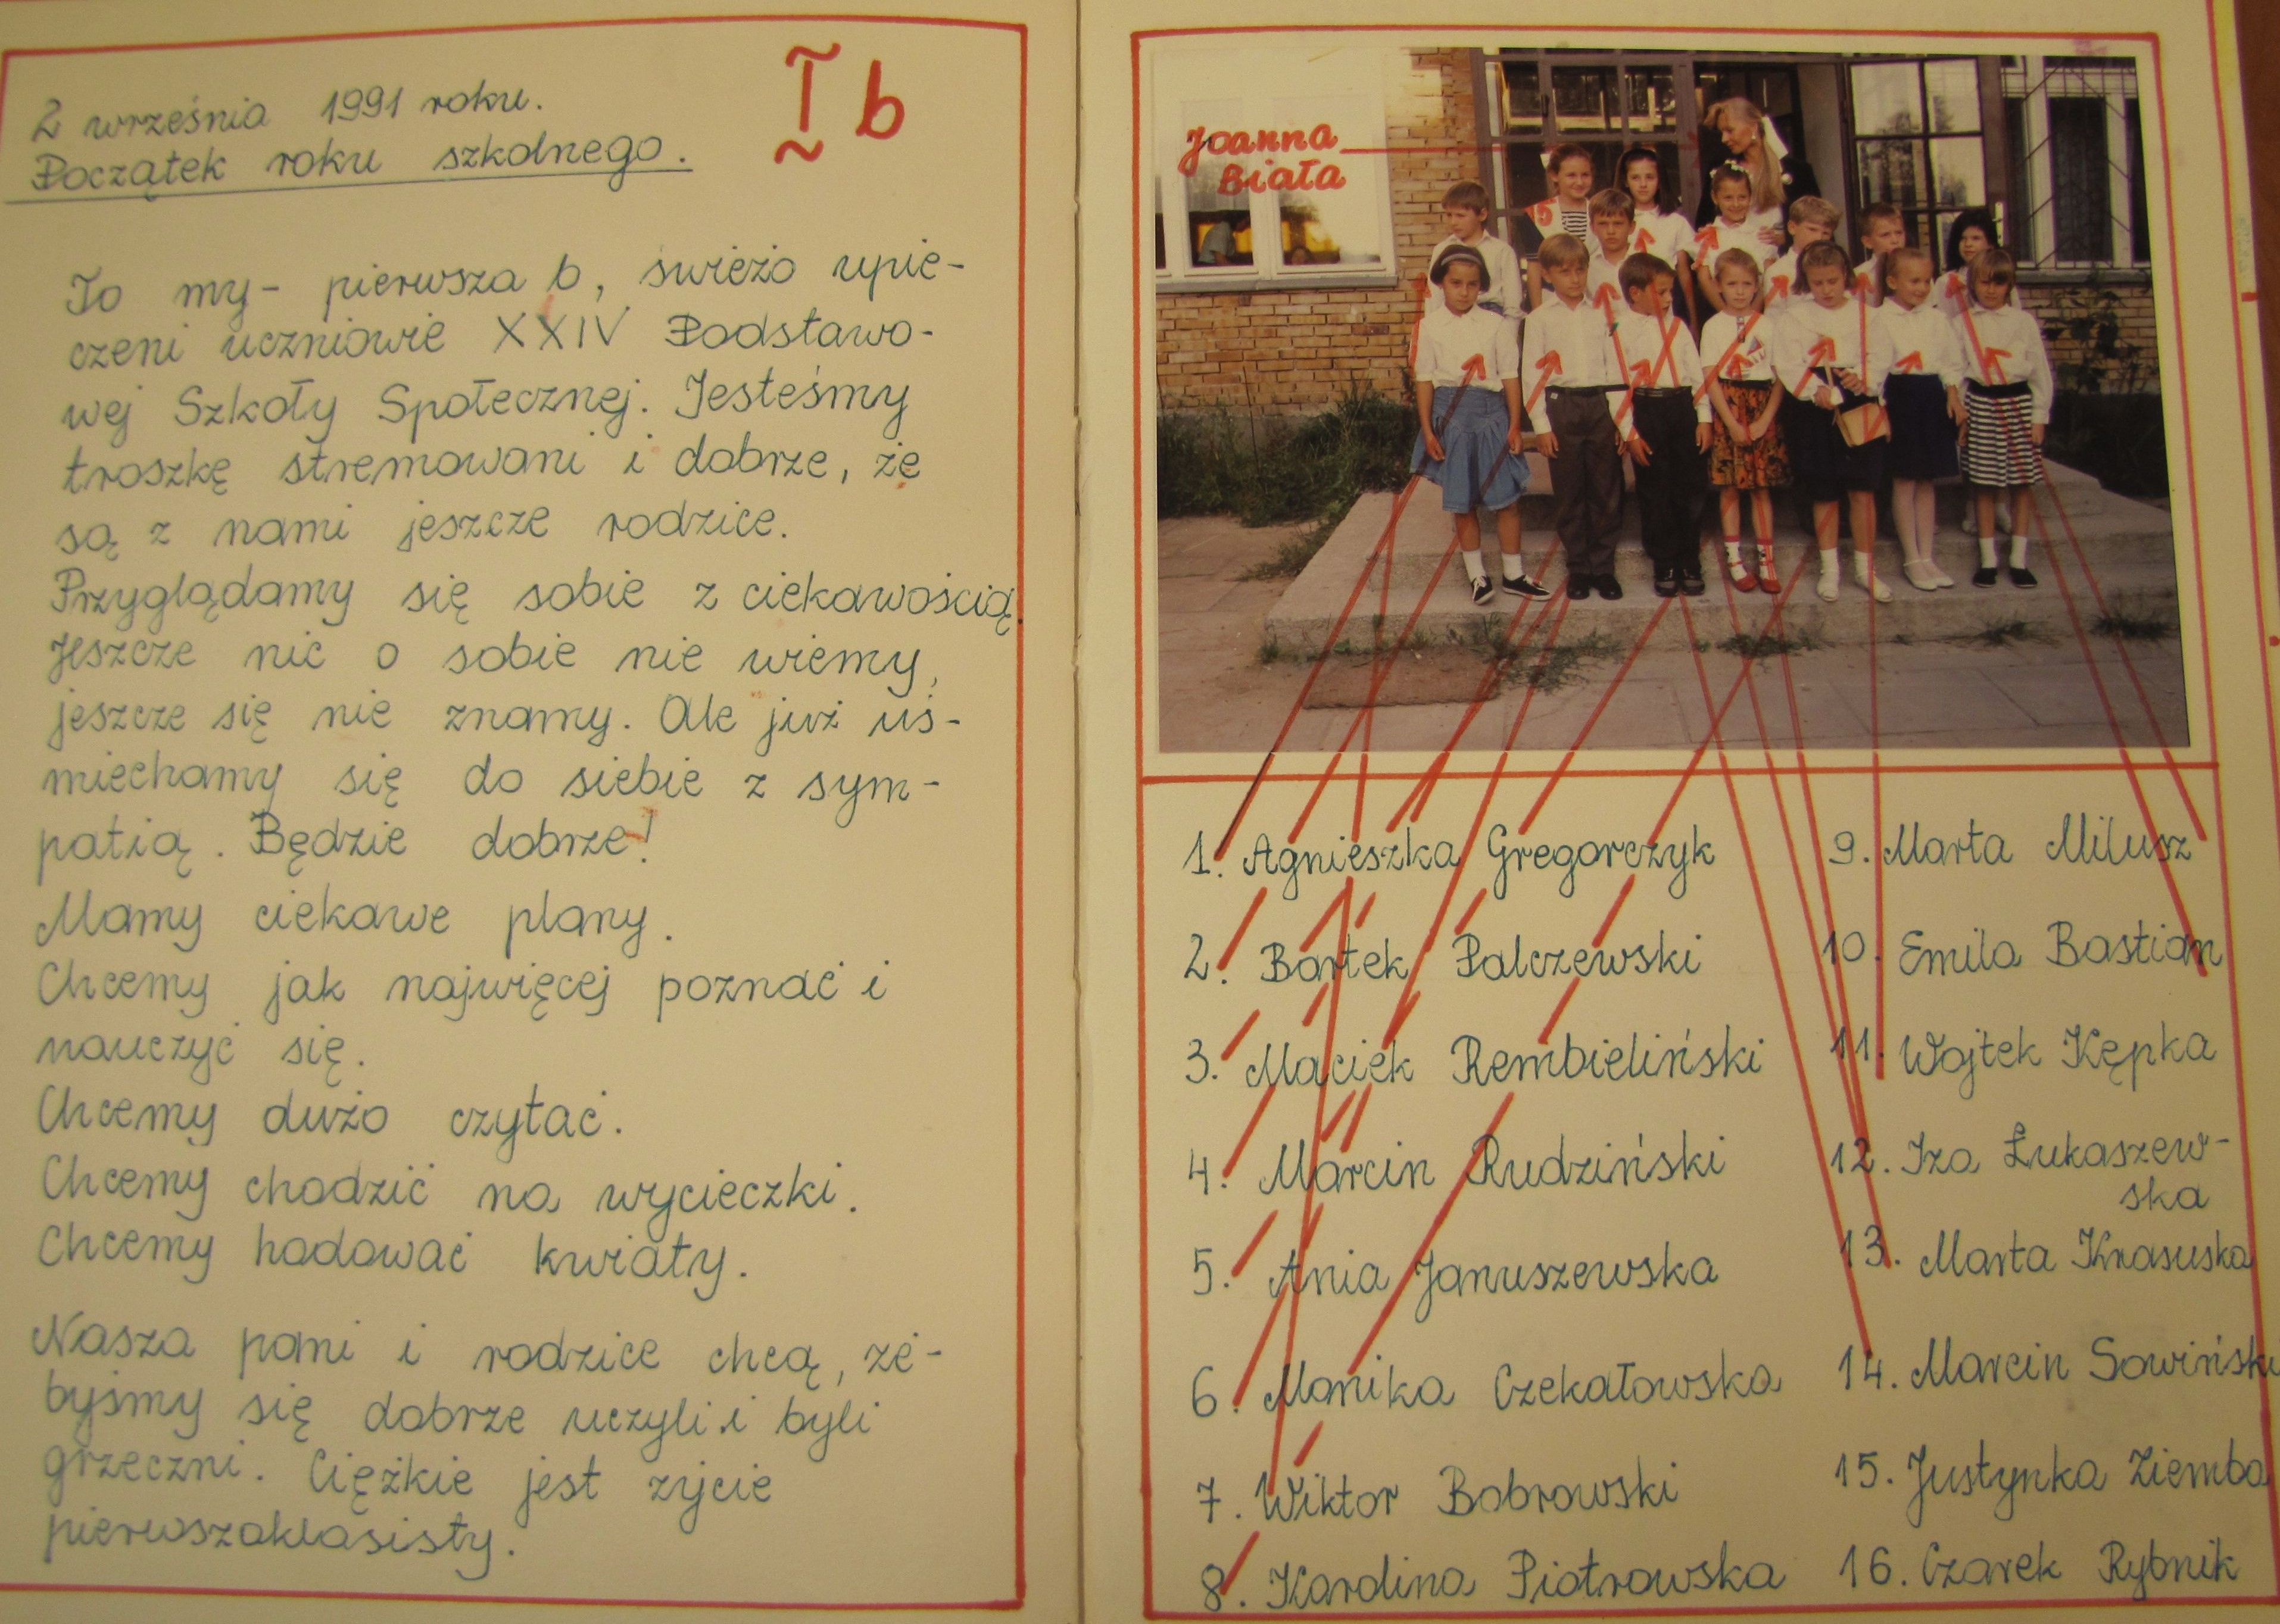 2 września 1991 roku.
Początek roku szkolnego.
I b
To my - pierwsza b, świeżo upie-
czeni uczniowie XXIV Podstawo-
wej Szkoły Społecznej. Jesteśmy
troszkę stremowani i dobrze, że
są z nami jeszcze rodzice.
Przyglądamy się sobie z ciekawością.
Jeszcze nic o sobie nie wiemy,
jeszcze się nie znamy. Ale już uś-
miechamy się do siebie z sym-
patią. Będzie dobrze!
Mamy ciekawe plany.
Chcemy jak najwięcej poznać i
nauczyć się.
Chcemy dużo czytać.
Chcemy chodzić na wycieczki.
Chcemy hodować kwiaty.
Nasza pani i rodzice chcą, że-
byśmy się dobrze uczyli i byli
grzeczni. Ciężkie jest życie
pierwszoklasisty.
Joanna
Biała
5
1. Agnieszka Gregorczyk
2. Bartek Palczewski
3. Maciek Rembieliński
4. Marcin Rudziński
5. Ania Januszewska
6. Monika Czekałowska
7. Wiktor Bobrowski
8. Karolina Piotrowska
9. Marta Milusz
10. Emila Bastian
11. Wojtek Kępka
12. Iza Łukaszew-
ska
13. Marta Krasuska
14. Marcin Sowiński
15. Justynka Ziemba
16. Czarek Rybnik